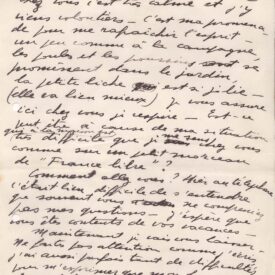 chez vous c'est très calme et j'y
viens volontiers – c'est ma promenade
de jour me rafraichir l'esprit –
un peu comme à la campagne,
les poules et les poussins se
promènent dans le jardin,
la petite biche est si jolie –
(elle va bien mieux) je vous assure
ici chez vous je respire – Est-ce
peut être à cause de ma situation
très difficile que je suis chez vous
comme sur un petit morceau
de "France libre" –
Comment allez vous? Hier au téléphone
c'était bien difficile de s'entendre
je souvent vous ne compreniez
pas mes questions – J'espère que
vous êtes contents de vos vacances –
Maintenant je vais vous laisser –
Ne faites pas attention comme j'écris
j'ai avant parfois tant de difficultés
pour m'exprimer que